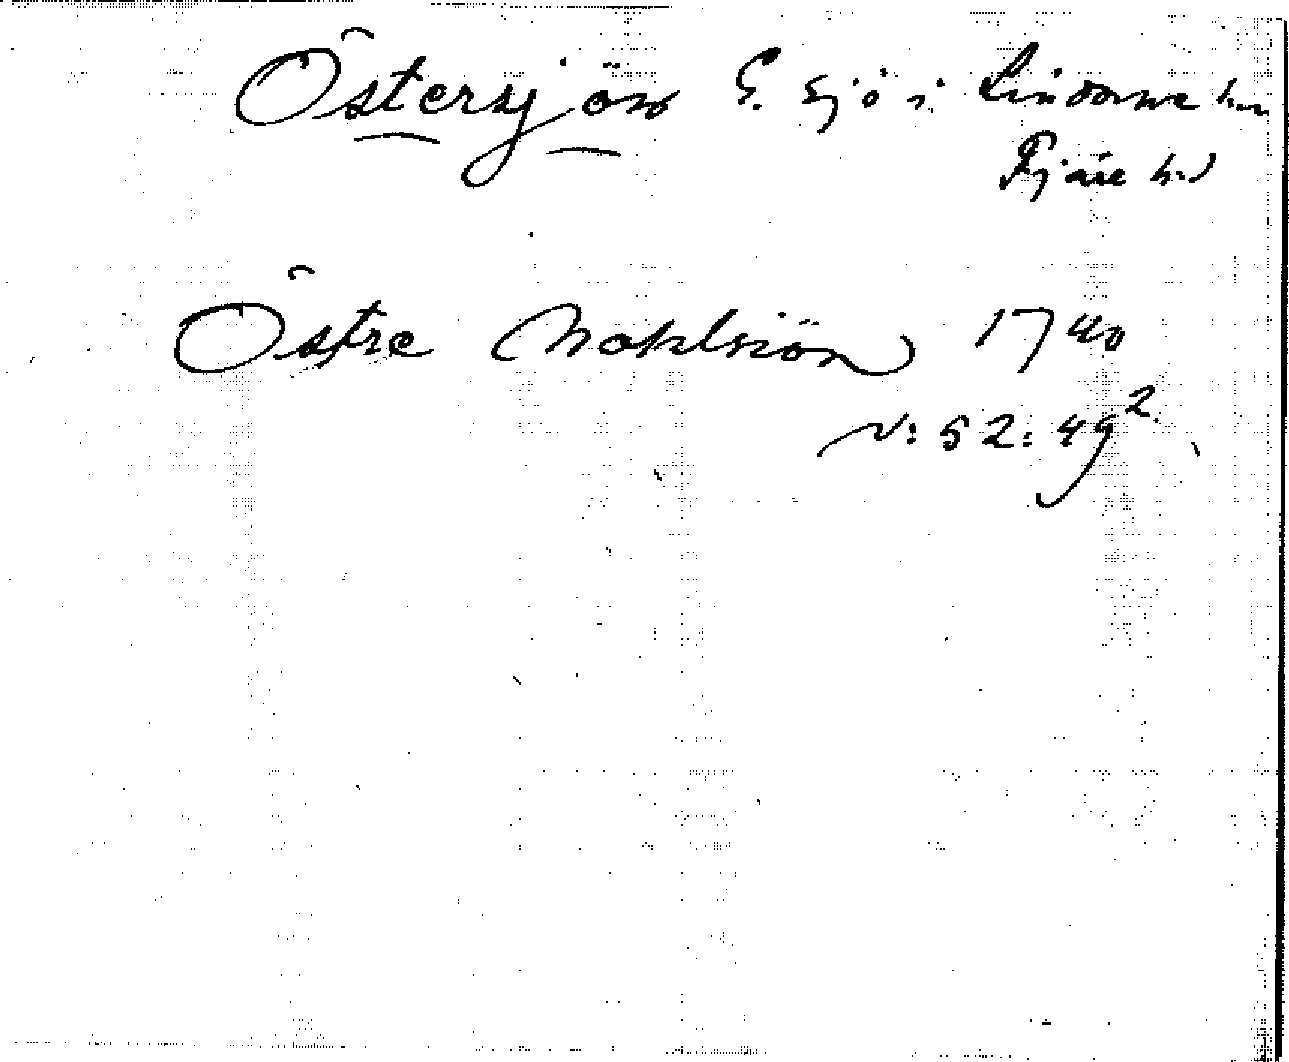 Östersjön S. sjö i Lindome sn
Fjäre hd
Östre Nahlsiön 1740
N: 52: 49²